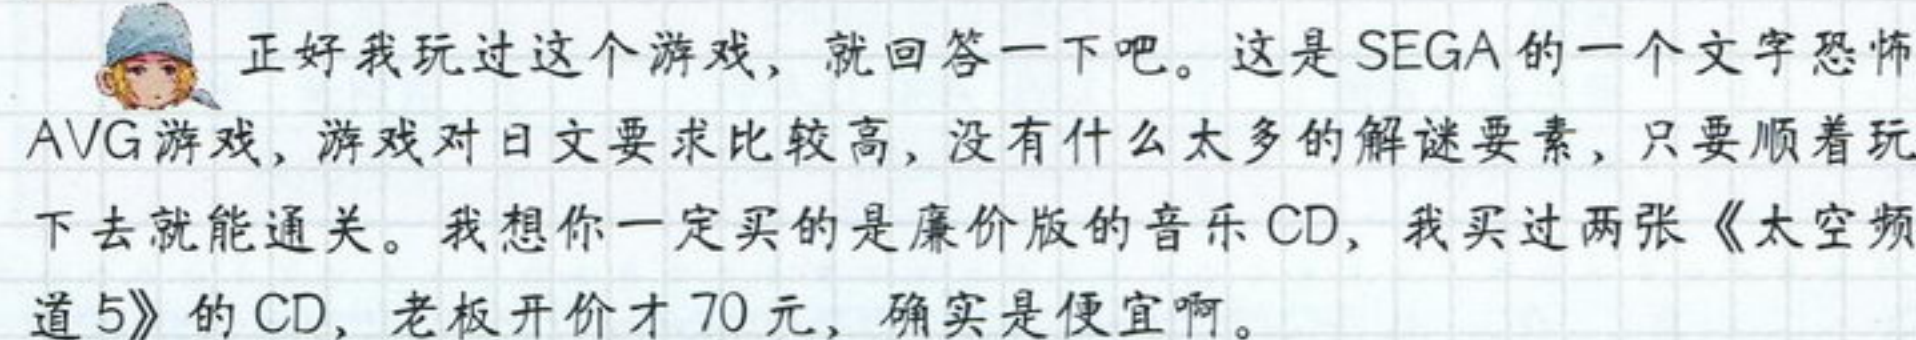 正好我玩过这个游戏，就回答一下吧。这是 SEGA 的一个文字恐怖
AVG 游戏，游戏对日文要求比较高，没有什么太多的解谜要素，只要顺着玩
下去就能通关。我想你一定买的是廉价版的音乐 CD，我买过两张《太空频
道 5》的 CD，老板开价才 70 元，确实是便宜啊。